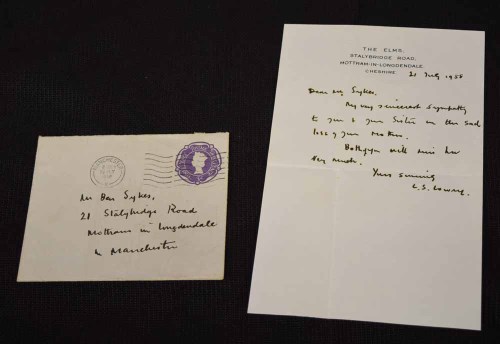 THE ELMS,
STALYBRIDGE ROAD,
MOTTRAM-IN-LONGDENDALE,
CHESHIRE
21 July 1958
Dear Mr Sykes,
My very sincerest Sympathy
to you & your Sister in the sad
loss of your Mother.
Both of you will miss her
very much.
Yours sincerely
L.S. Lowry.
Mr Ben Sykes,
21 Stalybridge Road
Mottram in Longdendale
Manchester